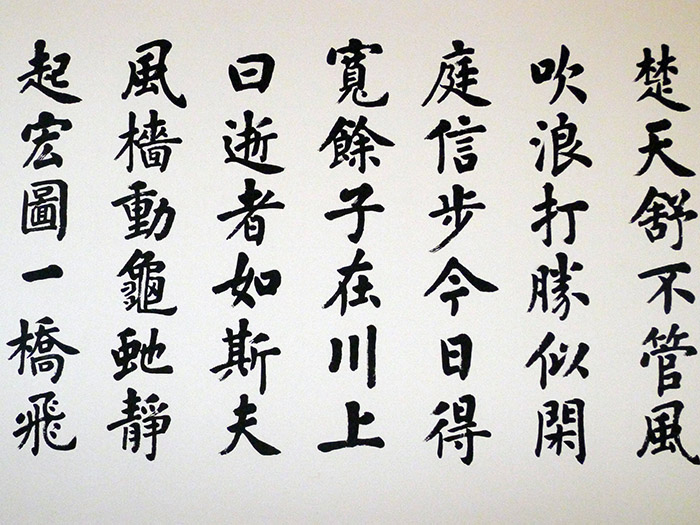 楚天舒不管風
吹浪打勝似閑
庭信步今日得
寬餘子在川上
曰逝者如斯夫
風檣動龜虵靜
起宏圖一橋飛